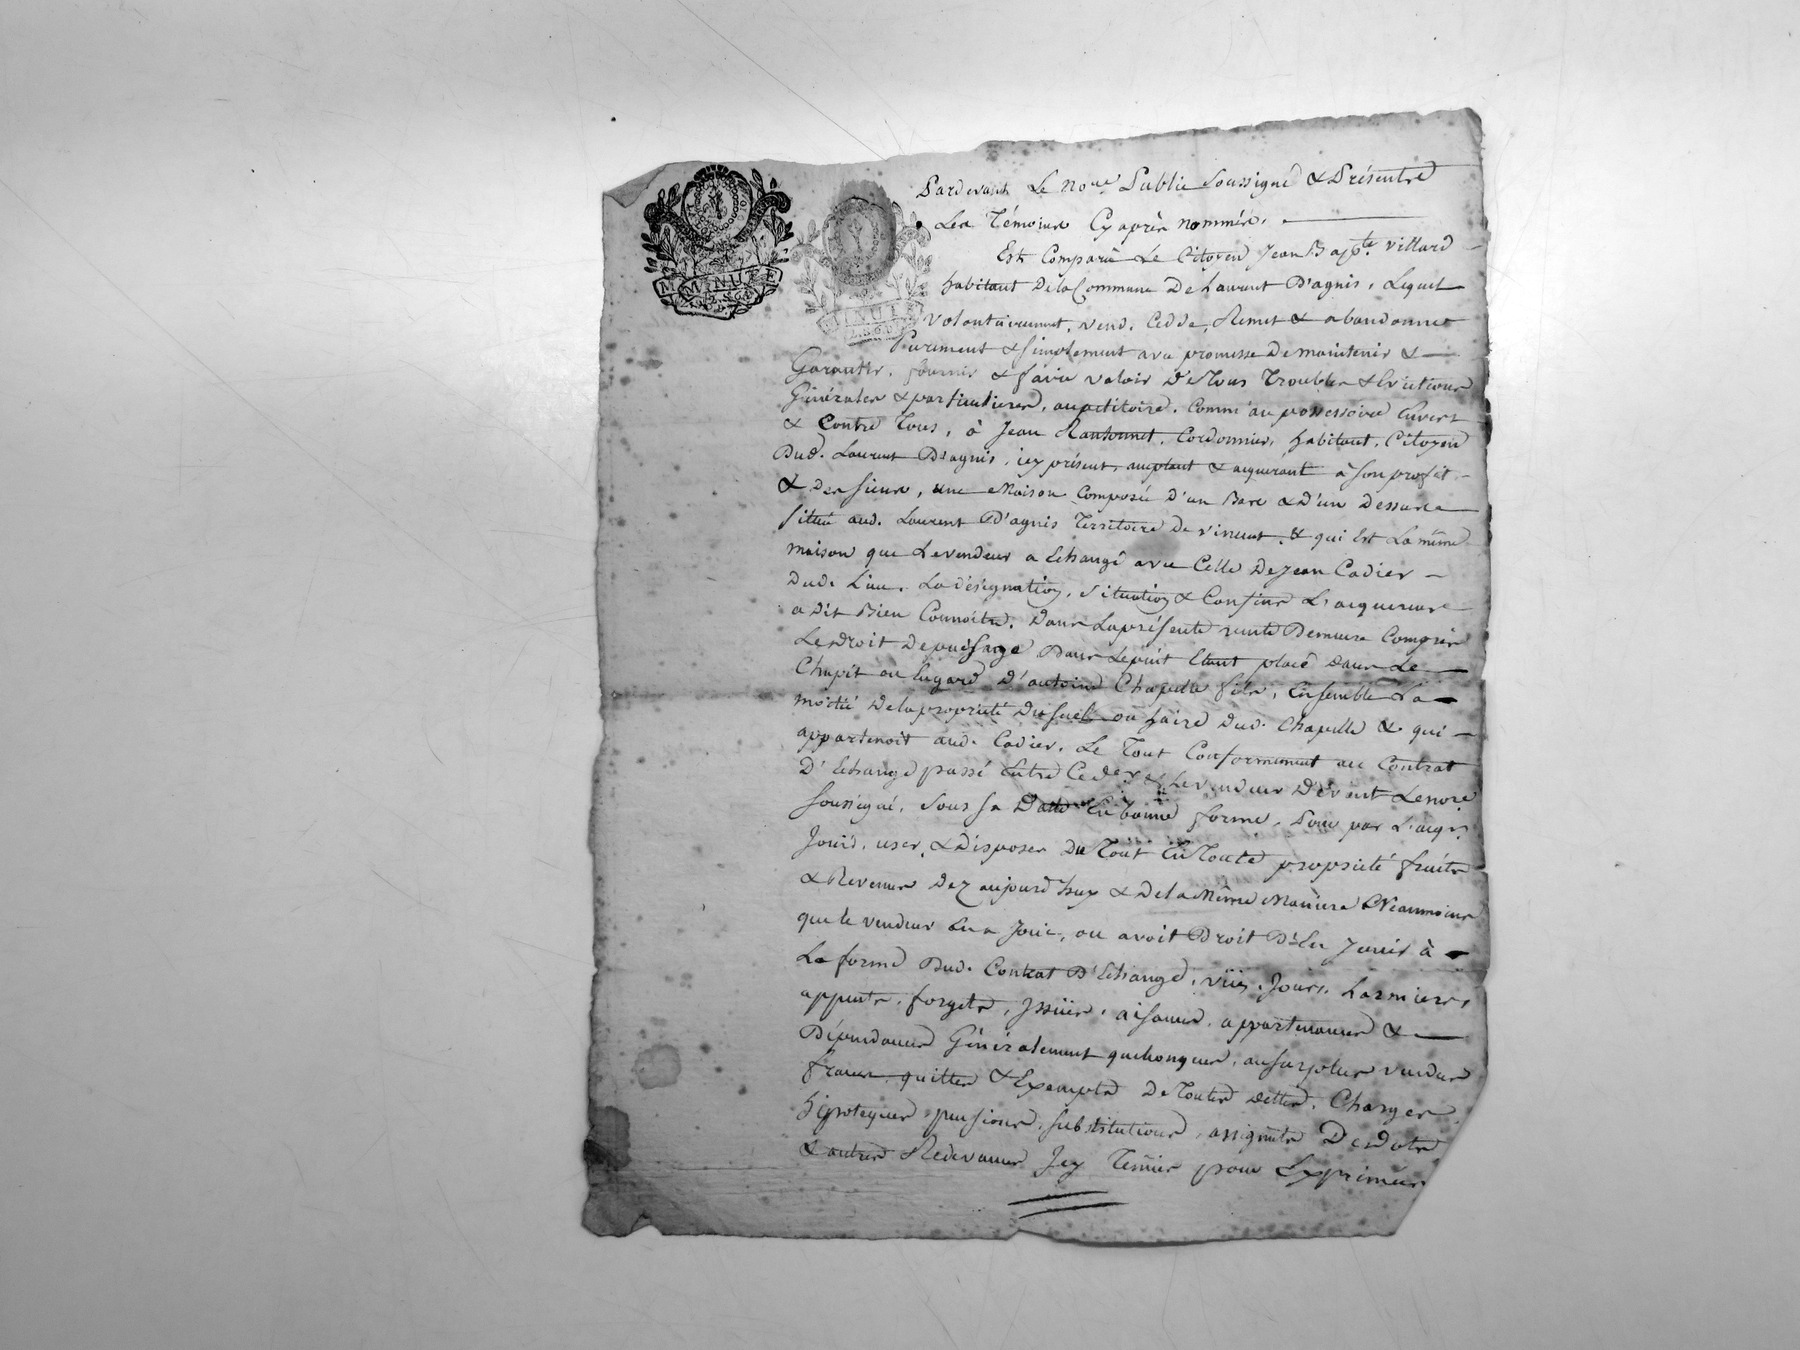 MINUTE
MINUTE
Pardevant Le Nore Public Soussigné & Présentre
Les Témoins Cy après nommés.
Est Comparu Le Citoyen Jean Bapte. Villard
habitant De la Commune De Laurent D'agnis, Lequel
volontairement, vend, Cedde, Remet & abandonne
Purement & simplement avec promesse De maintenir &
Garantir, fournir & faire valoir De Tous Troubles & Evictions
Générales & particulieres, au petitoire, Comm'au possessoire Envers
& Contre Tous, à Jean Cordonnier, habitant, Citoyen
Dud. Laurent D'agnis, icy présent, acceptant & acquerant à son profit
& Des siens, une Maison Composée D'un Bas & D'un Dessus
située aud. Laurent D'agnis Territoire De vincent, & qui Est La même
maison que Le vendeur a Echangé avec Celle De Jean Cadier
Dud. Lieu. La désignation, Situation & Confins L'acquereur
a Dit Bien Connoître. Dans La présente vente Demeure Compris
Le Droit De puisage Dans Le puit Etant placé Dans Le
Chapit ou hugard D'antoine Chapelle fils, Ensemble La
moitié De la propriété Du suel ou haire Dud. Chapelle & qui
appartenoit aud. Cadier, Le Tout Conformement au Contrat
D'Echange passé Entre Ce der. & Le vendeur Devant Le nore
soussigné, sous sa Datte En bonne forme, Pour par L'acqr.
Jouir, user, & Disposer Du Tout En Toute propriété fruits
& Revenus Dez aujourd'huy & De la Même Maniere Neanmoins
que le vendeur En a Joui, ou avoit Droit D'En Jouir à
La forme Dud. Contrat D'Echange, vües, Jours, Larmiers,
appents, forgets, Issües, aisances, appartenances &
Dépendances Généralement quelconques, au surplus vendue
franche, quitte & Exempte De Toutes Dettes, Charges
hipoteques, pensions, substitutions, assignats De Dots
& autres Redevances Icy Tenües pour Exprimées